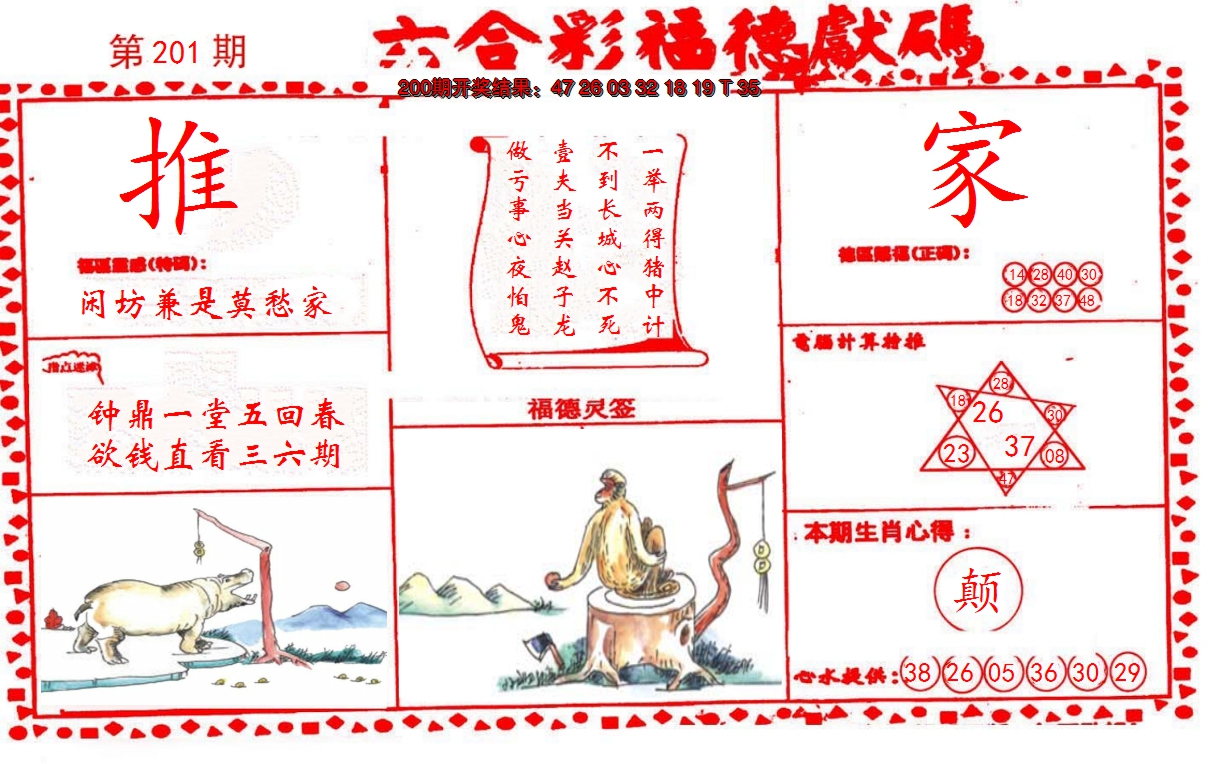 第201期
六合彩福德獻碼
200期开奖结果：47 26 03 32 18 19 T 35
推
福區靈感(特碼)：
闲坊兼是莫愁家
指点迷津
钟鼎一堂五回春
欲钱直看三六期
一举两得猪中计
不到长城心不死
壹夫当关赵子龙
做亏事心夜怕鬼
福德灵签
家
德區賜福(正碼)：
14 28 40 30
18 32 37 48
電腦计算抢推
28
18 26 30
23 37 08
47
本期生肖心得：
颠
心水提供：38 26 05 36 30 29